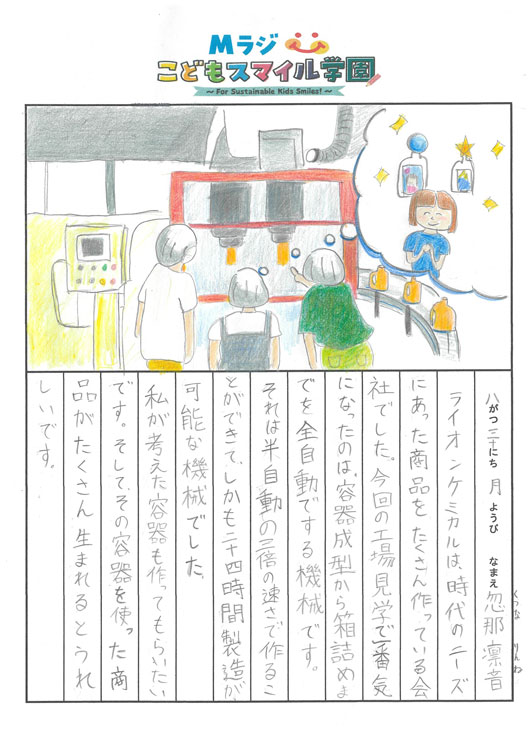 Mラジ
こどもスマイル学園
～For Sustainable Kids Smiles!～
八がつ三十にち 月ようび なまえ 忽那凛音
くつな りんね
ライオンケミカルは、時代のニーズ
にあった商品をたくさん作っている会
社でした。今回の工場見学で一番気
になったのは、容器成型から箱詰めま
でを全自動でする機械です。
それは半自動の三倍の速さで作るこ
とができて、しかも二十四時間製造が
可能な機械でした。
私が考えた容器も作ってもらいたい
です。そして、その容器を使った商
品がたくさん生まれるとうれ
しいです。